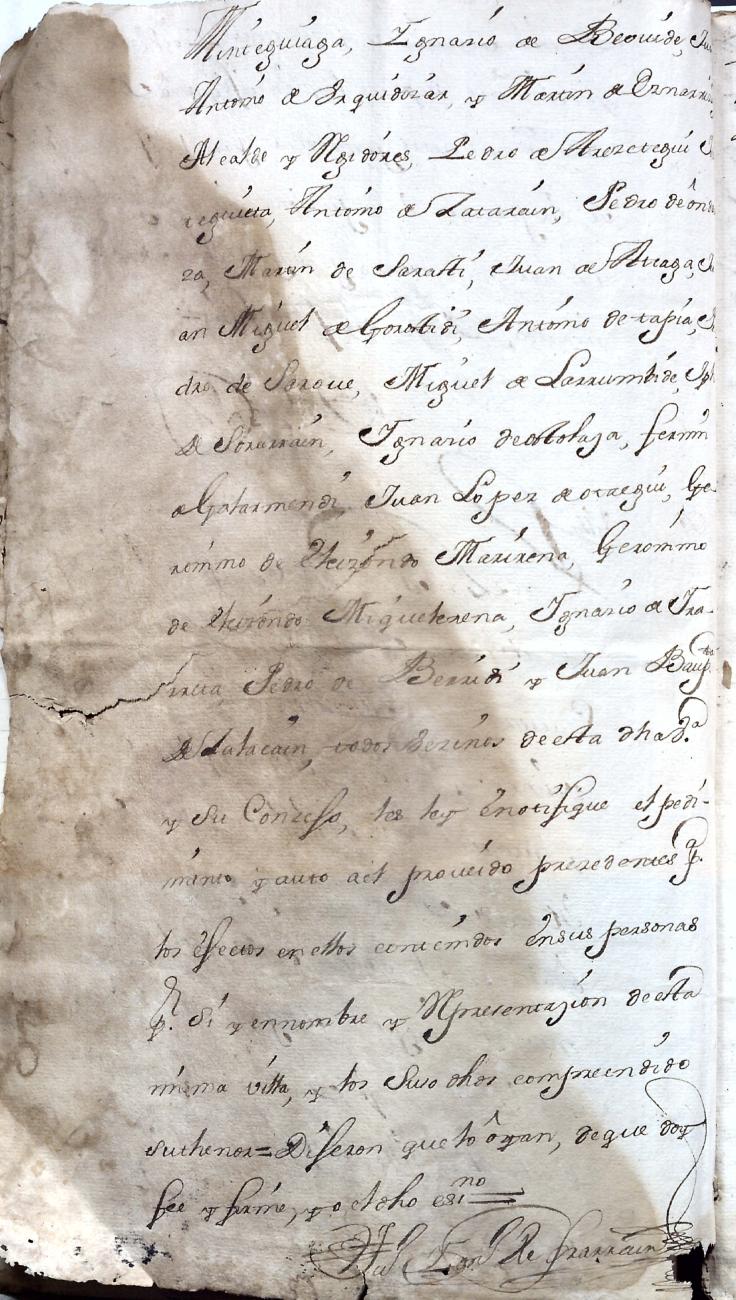 Minteguiaga, Ignaçio de Beovide, Ju
Antonio de Yrquidizar, y Martin de Oznarri
Alcalde y Rejidores, Pedro de Arozetegui
teguieta, Antonio de Zatarain, Pedro de on
za, Martin de Sarasti, Juan de Ateaga, Ju
an Miguel de Gorotidi, Antonio de tapia,
dro de Saroue, Miguel de Larrumbide,
de Sorarrain, Ignaçio de otolaza, fermin
de Gatarmendi, Juan Lopez de otxegui, Ge
ronimo de Elizondo Marirena, Geronimo
de Elizondo Miguelerena, Ignaçio de Tra
Pedro de Berridi y Juan Baup.ta
de Zatacain, todos vezinos de esta dha v.a
y su Conzejo, les ley e notifique el pedi-
mento y auto a el proueido prezedentes p.a
los efectos en ellos contenidos en sus personas
p.r si y en nombre y Representazion de esta
misma villa, y los suso dhos comprendido
su thenor= Dijeron que lo oyan, de que doy
fee y firme, yo el dho ess.no =
Ign.o de Sorarrain